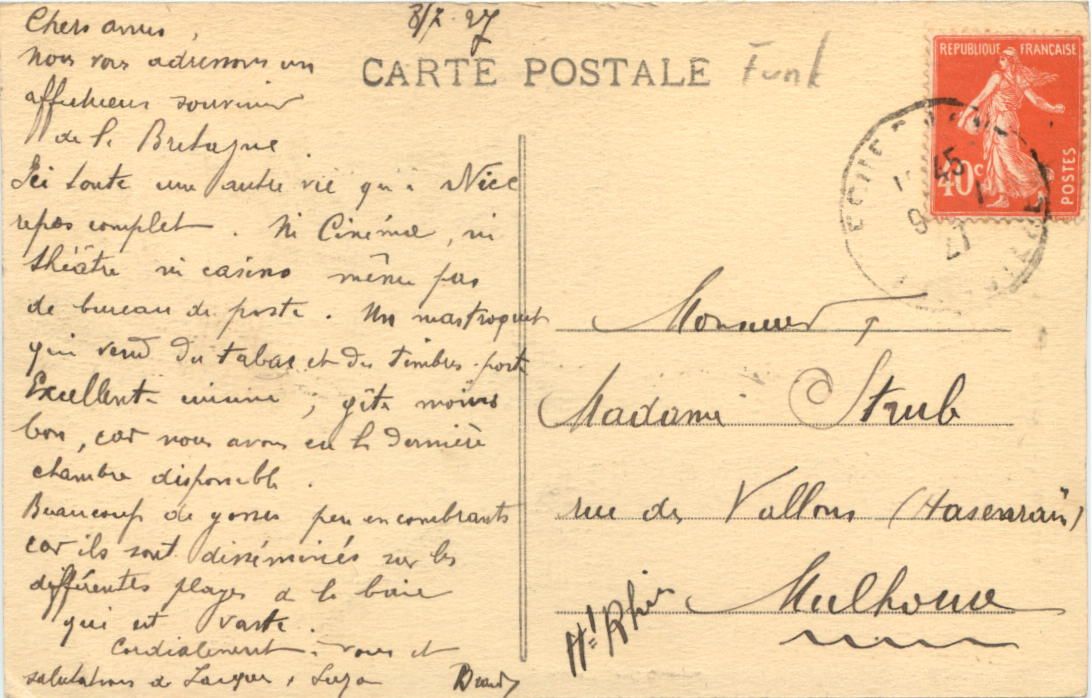 8/7. 27
CARTE POSTALE
Funk
REPUBLIQUE FRANÇAISE
40c
POSTES
45
9
27
Chers amis,
nous vous adressons un
affectueux souvenir
de la Bretagne.
Ici toute une autre vie qu'à Nice
repos complet. Ni Cinéma, ni
théâtre ni casino même pas
de bureau de poste. Un mastroquet
qui vend du tabac et des timbres-poste
Excellente cuisine, gîte moins
bon, car nous avons eu la dernière
chambre disponible.
Beaucoup de gosses peu encombrants
car ils sont disséminés sur les
différentes plages de la baie
qui est vaste.
Cordialement à vous et
salutations de
Monsieur
Madame Strub
rue des Vallons (Hasenrain)
Mulhouse
Ht Rhin